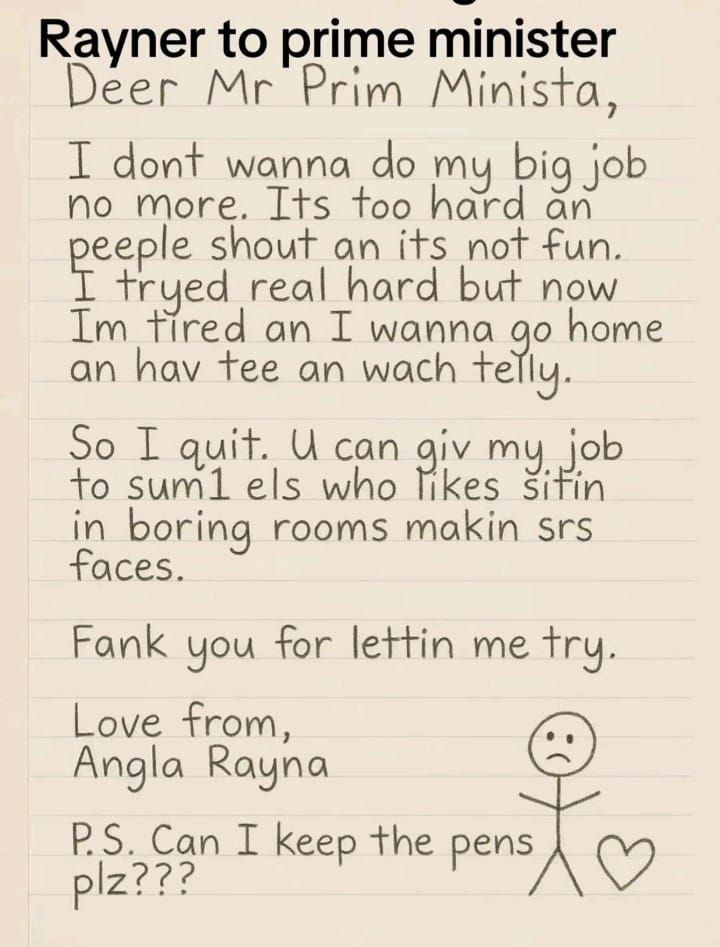 Rayner to prime minister
Deer Mr Prim Minista,
I dont wanna do my big job
no more. Its too hard an
peeple shout an its not fun.
I tryed real hard but now
Im tired an I wanna go home
an hav tee an wach telly.
So I quit. U can giv my job
to sum1 els who likes sitin
in boring rooms makin srs
faces.
Fank you for lettin me try.
Love from,
Angla Rayna
P.S. Can I keep the pens
plz???